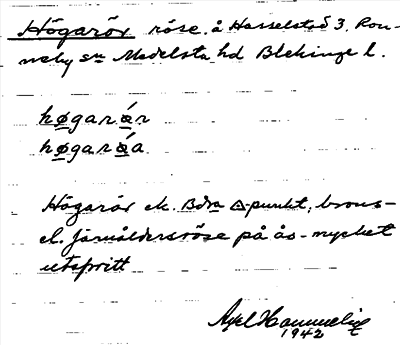 Högarör röse. å Hasselstad 3. Ron-
neby sn Medelsta hd Blekinge l.
høgarǿr
høgarǿa
Högarör ek. Bdra △-punkt, brons-
el. järnåldersröse på ås- mycket
utspritt
Axel Hammelig
1942